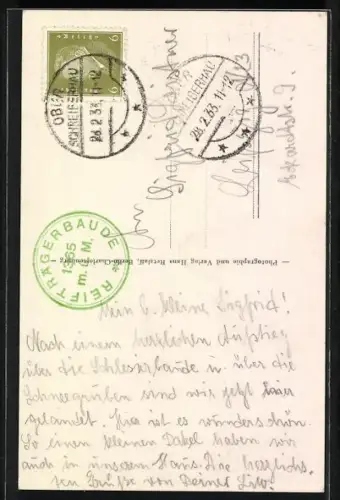 6
OBER
SCHREIBERHAU
28.2.33.11-12
SCHREIBERHAU
28.2.33.11-12
REIFTRÄGERBAUDE
1365
m. ü. M.
— Photographie und Verlag Hans Retzlaff, Berlin-Charlottenburg —
Mein l. kleiner Siegfrid!
Nach einem herrlichen Aufstieg
über die Schlesierbaude u. über die
Schneegruben sind wir jetzt hier
gelandet. Hier ist es wunderschön.
So einen kleinen Dakel haben wir
auch in unserm Haus. Die herzlichs-
ten Grüße von Deiner